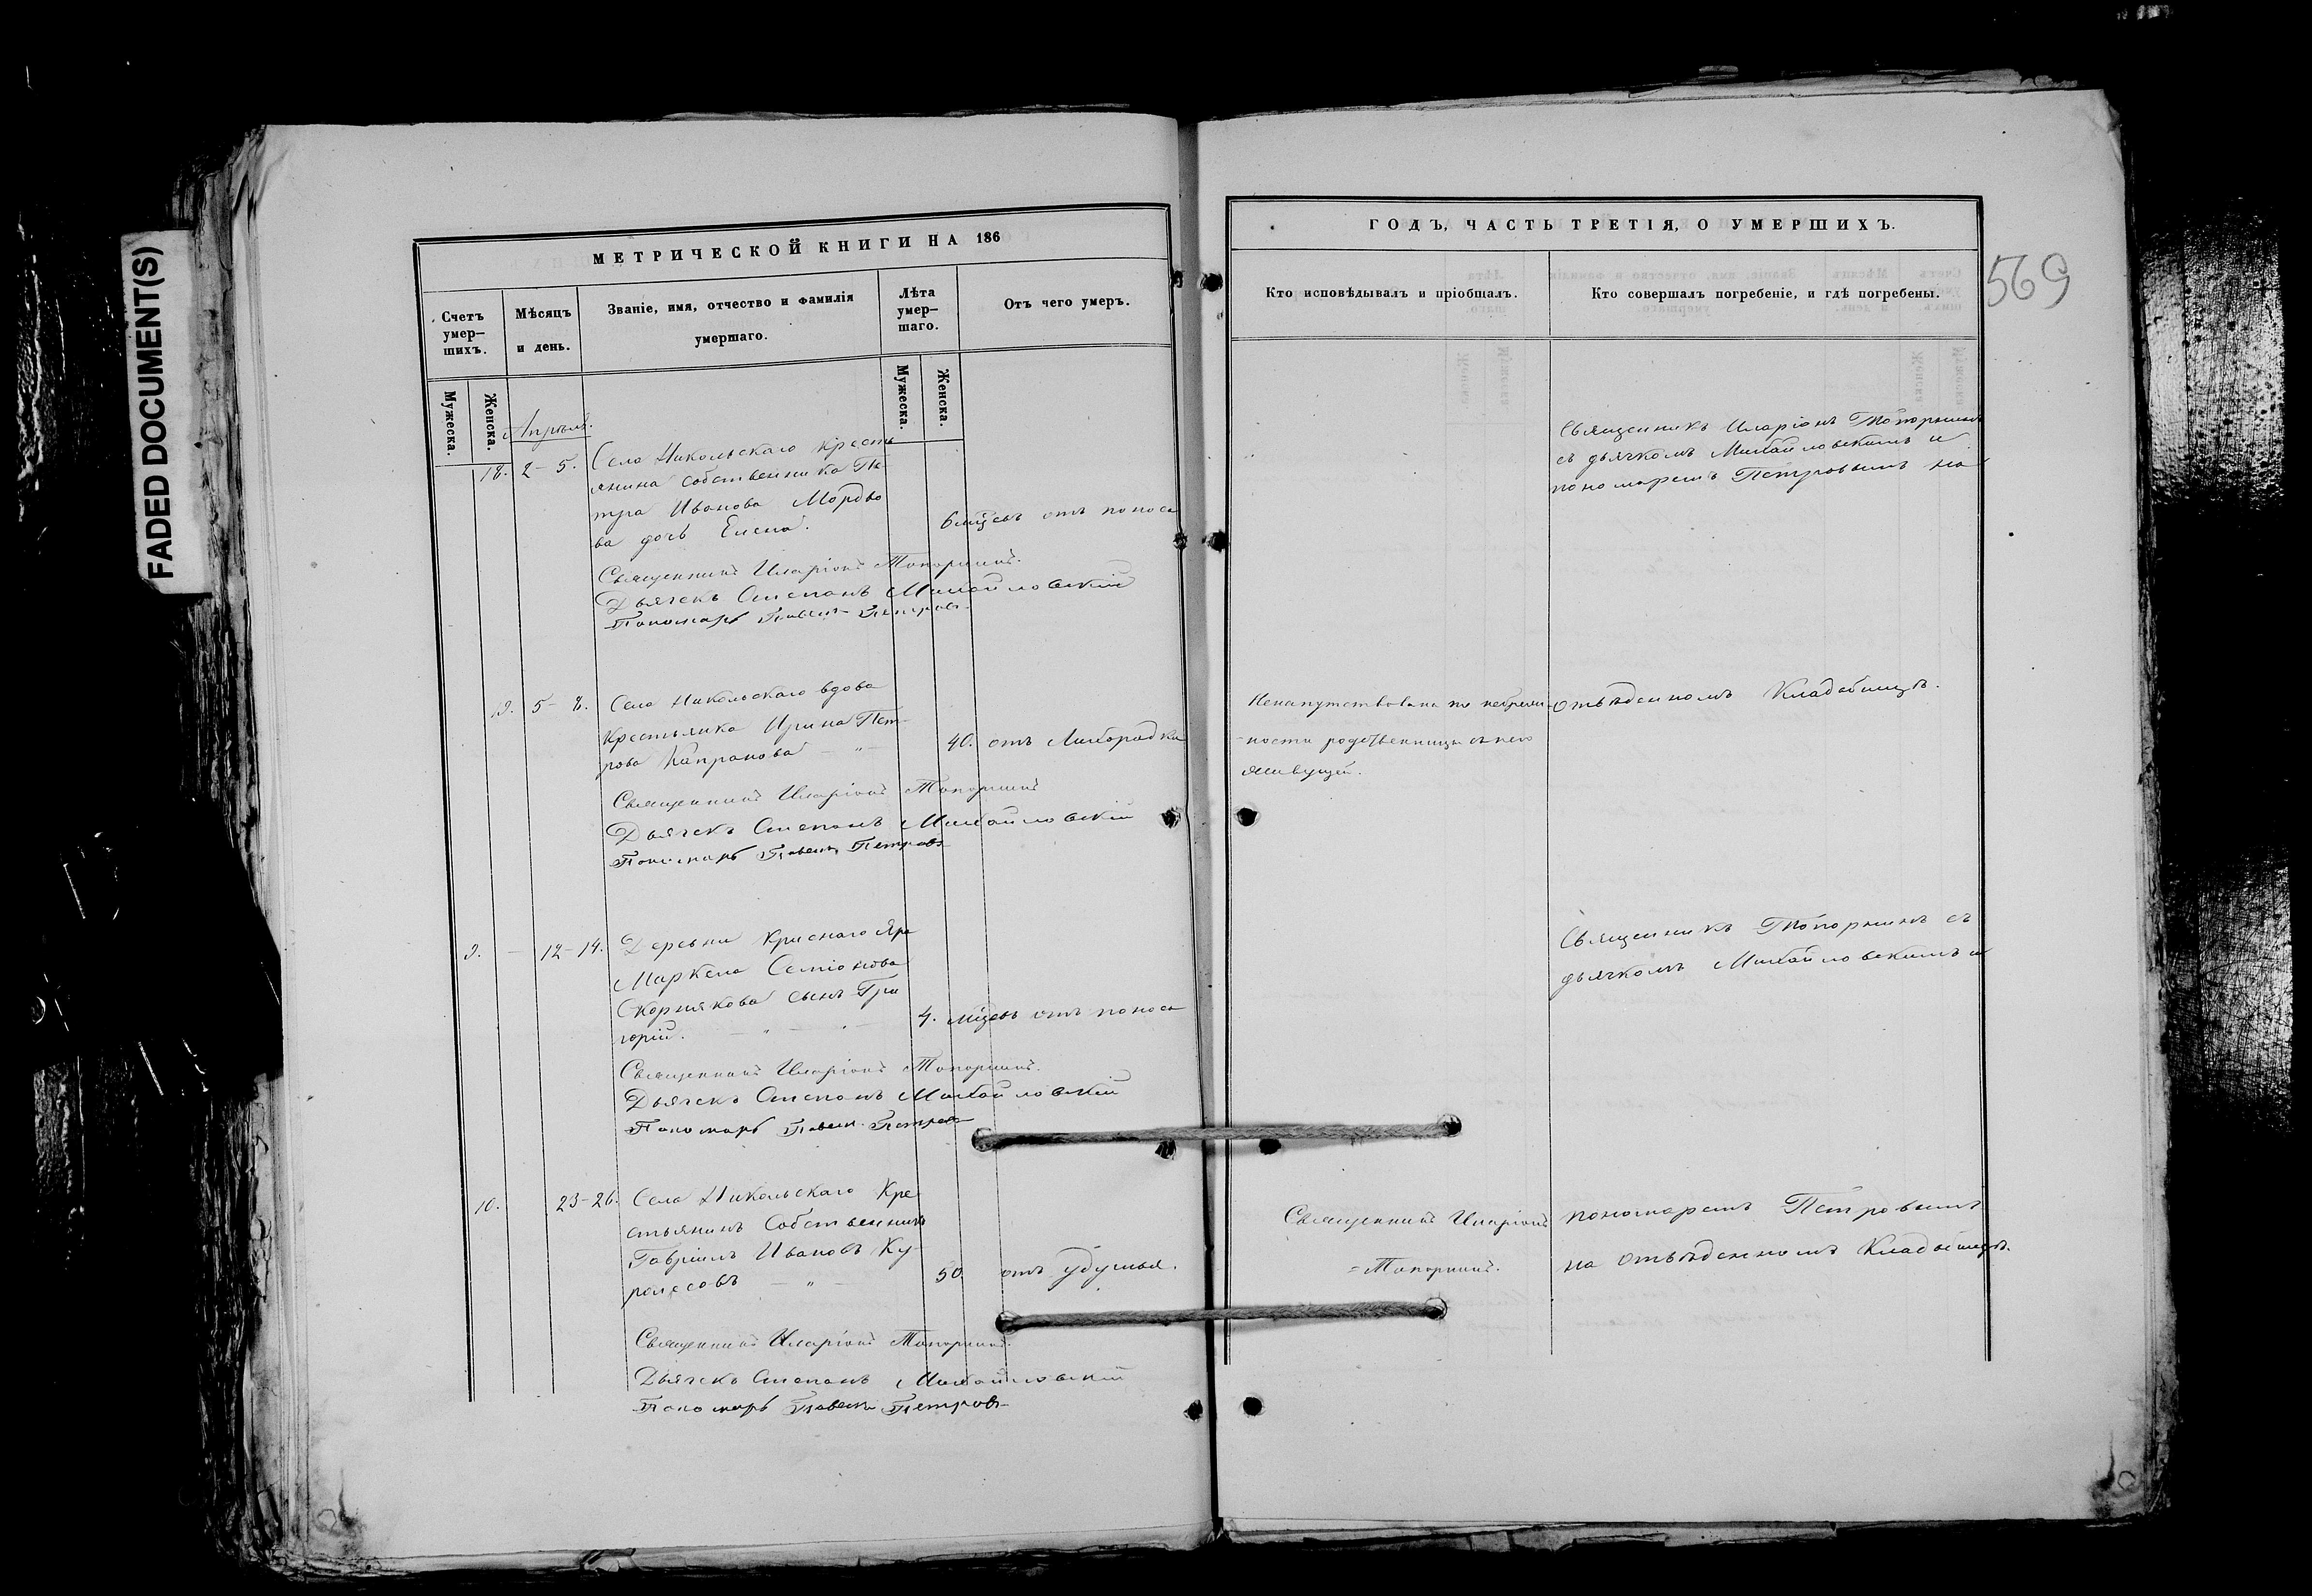 FADED DOCUMENT(S)
МЕТРИЧЕСКОЙ КНИГИ НА 186
Счетъ умер–шихъ.
Мѣсяцъ и день.
Званіе, имя, отчество и фамилія
умершаго.
Лѣта умер–шаго.
Отъ чего умеръ.
Мужеска.
Женска.
Мужеска.
Женска.
Апрѣль.
18. 2–5. Села Никольскаго Кресть
янина собственника Пе
тра Иванова Мордво
ва дочь Елена. 6 мѣсцевъ отъ поноса
Священникъ Иларіонъ Топорнинъ.
Дьячекъ Степанъ Михайловскій
Пономарь Павелъ Петровъ
19. 5–8. Села Никольскаго вдова
Крестьянка Ирина Пет-
рова Капранова — „ — 40. отъ Лихорадки
Священникъ Иларіонъ Топорнинъ
Дьячекъ Степанъ Михайловскій
Пономарь Павелъ Петровъ
9. — 12–14. Деревни Краснаго Яра
Маркела Семіонова
Корнякова сынъ Гри
горій. — „ — „ — 4. мѣсцевъ отъ поноса
Священникъ Иларіонъ Топорнинъ.
Дьячекъ Степанъ Михайловскій
Пономарь Павелъ Петровъ
10. 23–26. Села Никольскаго Кре
стьянинъ Собственникъ
Гавріилъ Ивановъ Ку-
ролесовъ — „ — 50. отъ удушья.
Священникъ Иларіонъ Топорнинъ.
Дьячекъ Степанъ Михайловскій
Пономарь Павелъ Петровъ
ГОДЪ, ЧАСТЬ ТРЕТІЯ, О УМЕРШИХЪ.
569
Кто исповѣдывалъ и пріобщалъ.
Кто совершалъ погребеніе, и гдѣ погребены.
Священникъ Иларіонъ Топорнинъ
съ дьячкомъ Михайловскимъ и
пономаремъ Петровымъ на
Ненапутствована по небреж-
-ности родственницы съ нею
живущей.
отвѣденномъ Кладбищѣ.
Священникъ Топорнинъ съ
дьячкомъ Михайловскимъ и
Священникъ Иларіонъ
=Топорнинъ.
пономаремъ Петровымъ
на отвѣденномъ Кладбищѣ.